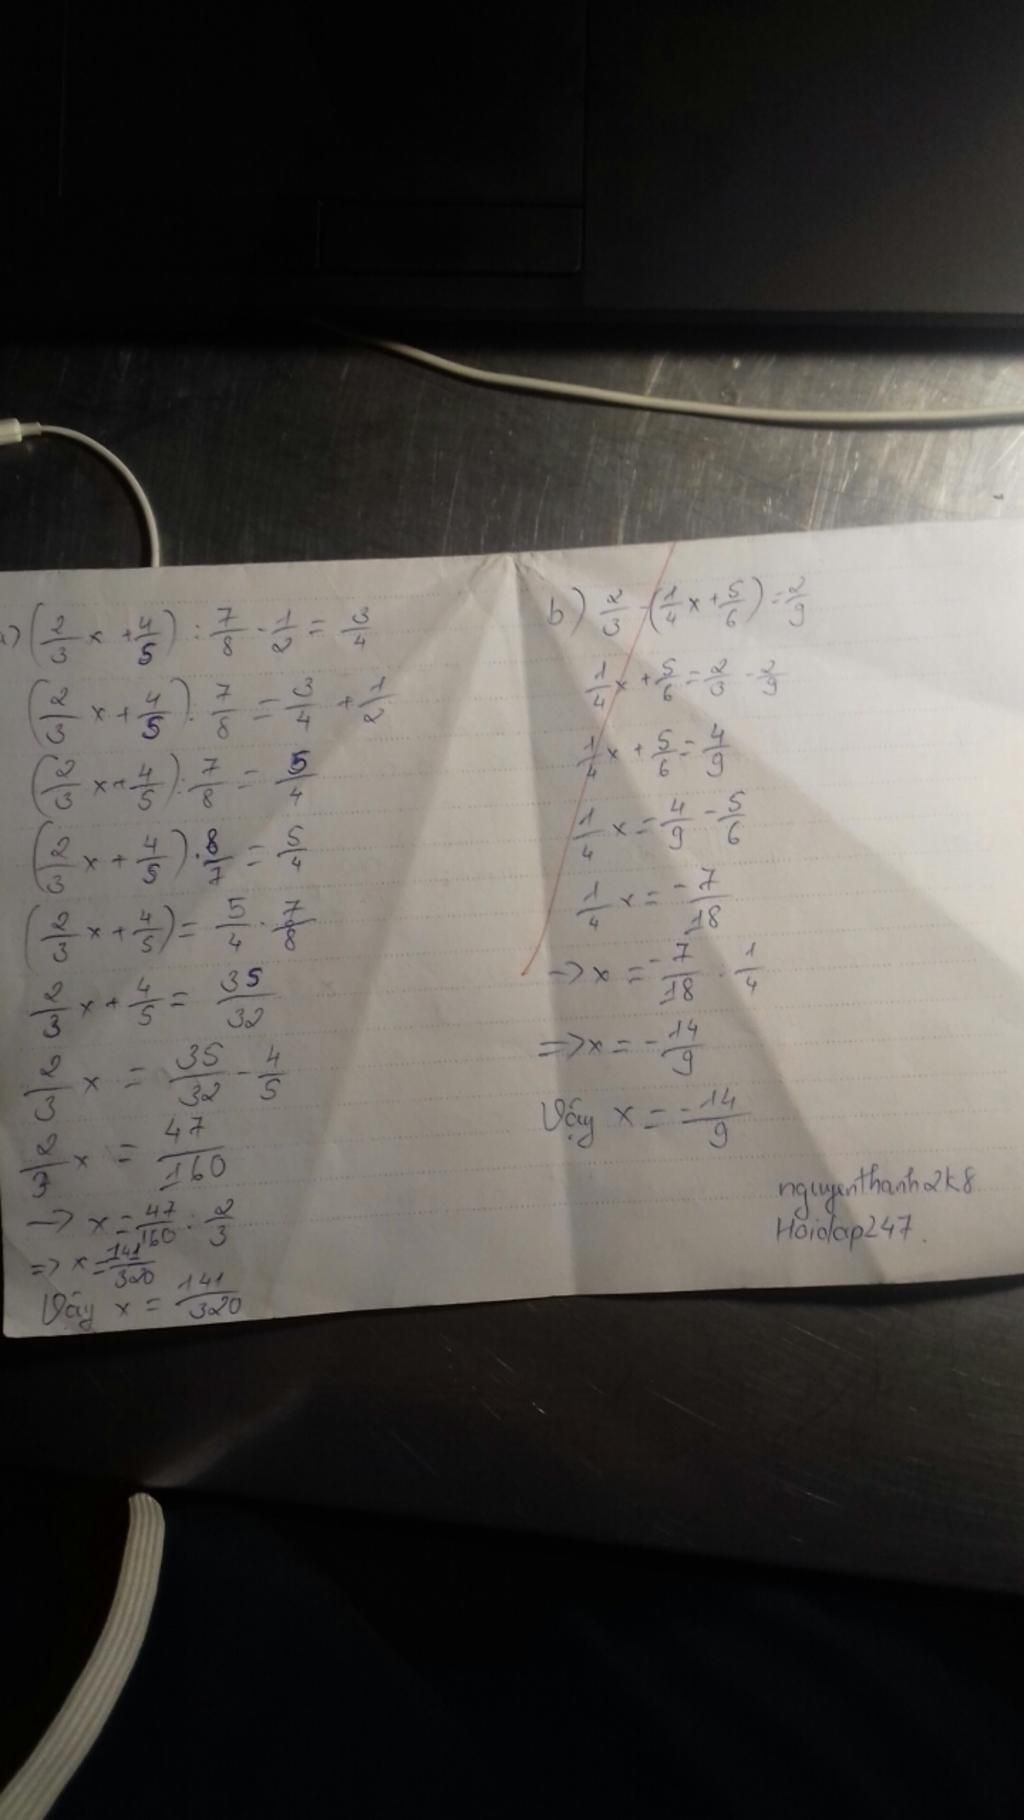 a) (2/3 x + 4/5) : 7/8 - 1/2 = 3/4
(2/3 x + 4/5) : 7/8 = 3/4 + 1/2
(2/3 x + 4/5) : 7/8 = 5/4
(2/3 x + 4/5) . 8/7 = 5/4
(2/3 x + 4/5) = 5/4 . 7/8
2/3 x + 4/5 = 35/32
2/3 x = 35/32 - 4/5
2/3 x = 47/160
-> x = 47/160 : 2/3
=> x = 141/320
Vậy x = 141/320
b) 2/3 - (1/4 x + 5/6) = 2/9
1/4 x + 5/6 = 2/3 - 2/9
1/4 x + 5/6 = 4/9
1/4 x = 4/9 - 5/6
1/4 x = -7/18
-> x = -7/18 : 1/4
=> x = -14/9
Vậy x = -14/9
nguyenthanh2k8
Hoidap247.